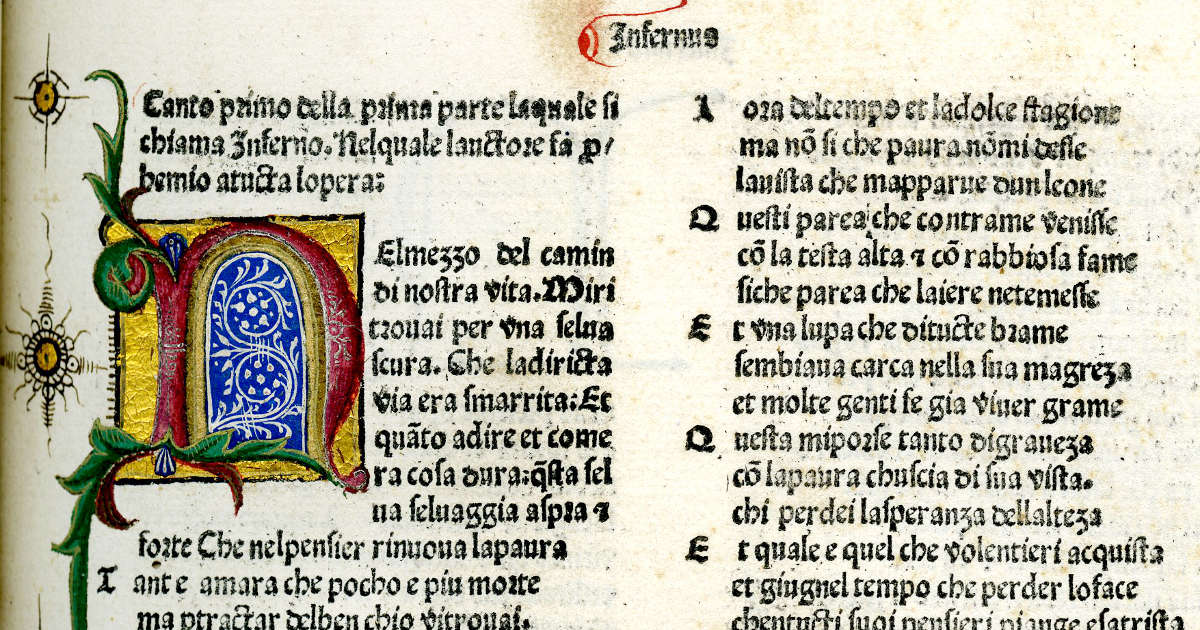 Infernus
Canto primo della prima parte laquale si
chiama Inferno. Nelquale lauctore fa ꝓ/
hemio atucta lopera:
NElmezzo del camin
di nostra vita. Miri
trouai per vna selua
scura. Che ladiricta
via era smarrita: Et
quãto adire et come
ra cosa dura: q̃sta sel
ua seluaggia aspra ⁊
forte Che nelpensier rinuoua lapaura
Tant e amara che pocho e piu morte
ma ptractar delben chio vitrouai.
Lora deltempo et ladolce stagione
ma nõ si che paura nõmi desse
lauista che mapparue dun leone
Questi parea che contrame venisse
cõ la testa alta ⁊ cõ rabbiosa fame
siche parea che laiere netemesse
Et vna lupa che ditucte brame
sembiaua carca nella sua magreza
et molte genti fe gia viuer grame
Questa miporse tanto digraueza
cõ lapaura chuscia di sua vista.
chi perdei lasperanza dellalteza
Et quale e quel che volentieri acquista
et giugnel tempo che perder loface
chentucti suoi pensieri piange esatrista